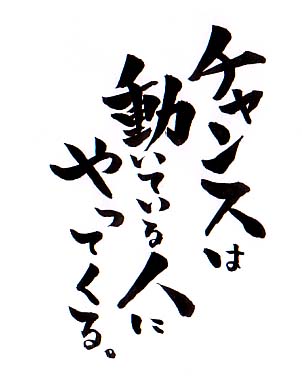 チャンスは
動いている人に
やってくる。